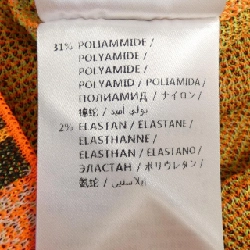 31% POLIAMMIDE /
POLYAMIDE /
POLYAMIDE /
POLYAMID / POLIAMIDA /
ПОЛИАМИД / ナイロン /
錦蛇 / بولي أميد /
2% ELASTAN / ELASTANE /
ELASTHANNE /
ELASTHAN / ELASTANO /
ЭЛАСТАН / ポリウレタン /
氨蛇 / إيلاستين